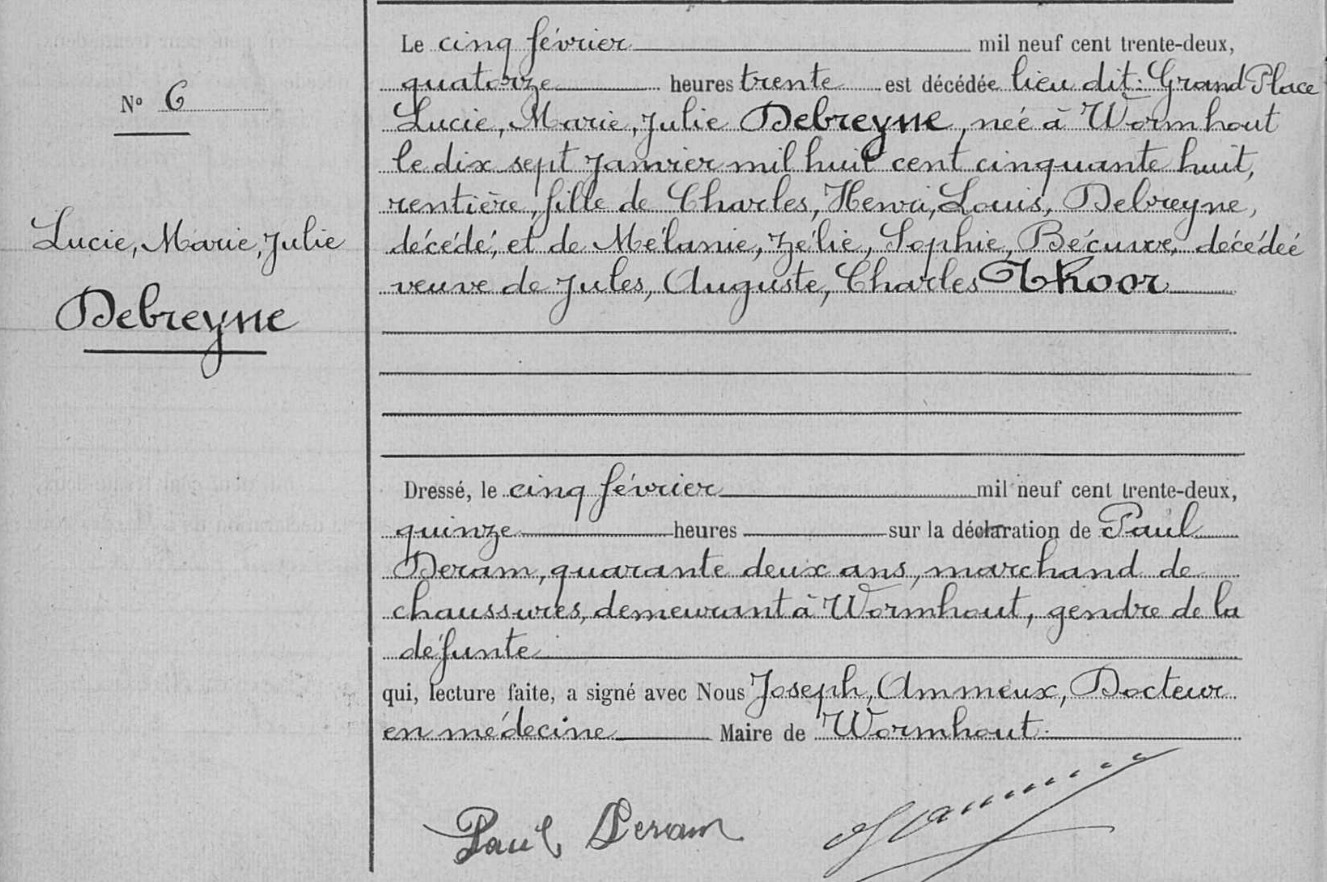 Le cinq février mil neuf cent trente-deux,
quatorze heures trente est décédée lieu dit: Grand Place
Lucie, Marie, Julie Debreyne, née à Wormhout
le dix sept Janvier mil huit cent cinquante huit,
rentière, fille de Charles, Henri, Louis, Debreyne,
décédé, et de Mélanie, Zélie, Sophie, Bécuwe, décédée
veuve de Jules, Auguste, Charles Thoor
N° 6
Lucie, Marie, Julie
Debreyne
Dressé, le cinq février mil neuf cent trente-deux,
quinze heures sur la déclaration de Paul
Deram, quarante deux ans, marchand de
chaussures, demeurant à Wormhout, gendre de la
défunte
qui, lecture faite, a signé avec Nous Joseph, Ammeux, Docteur
en médecine Maire de Wormhout.
Paul Deram